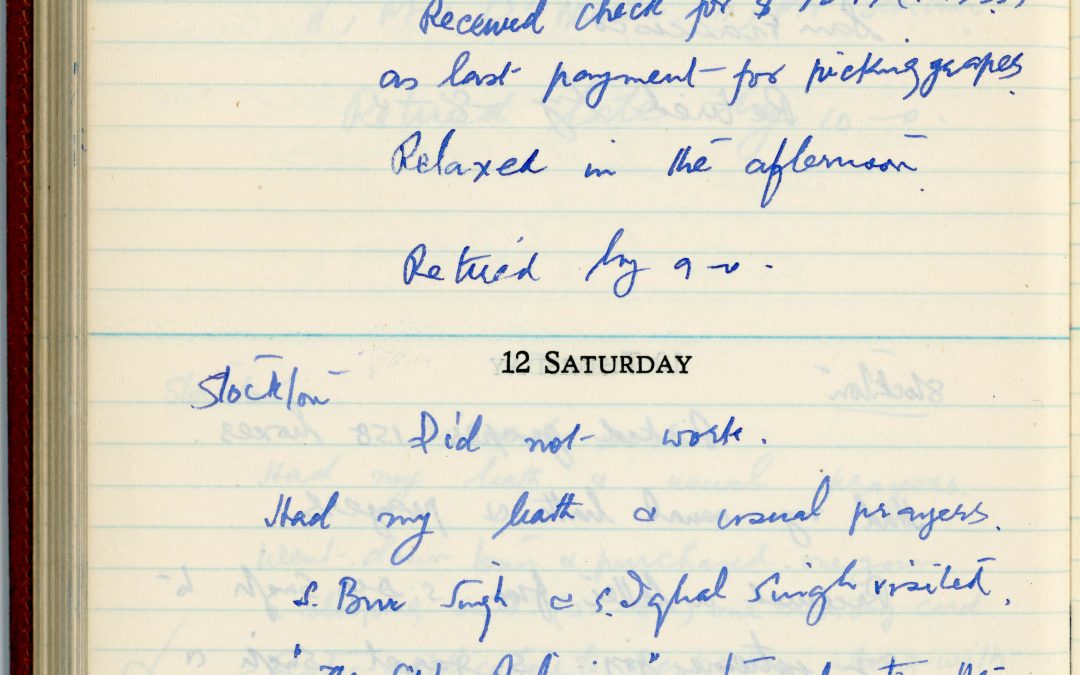 Received check for $
as last payment for picking grapes
Relaxed in the afternoon.
Retried by 9-0.
12 SATURDAY
Stockton
Did not work.
Had my bath & usual prayers.
S. Singh & S. Iqbal Singh visited.